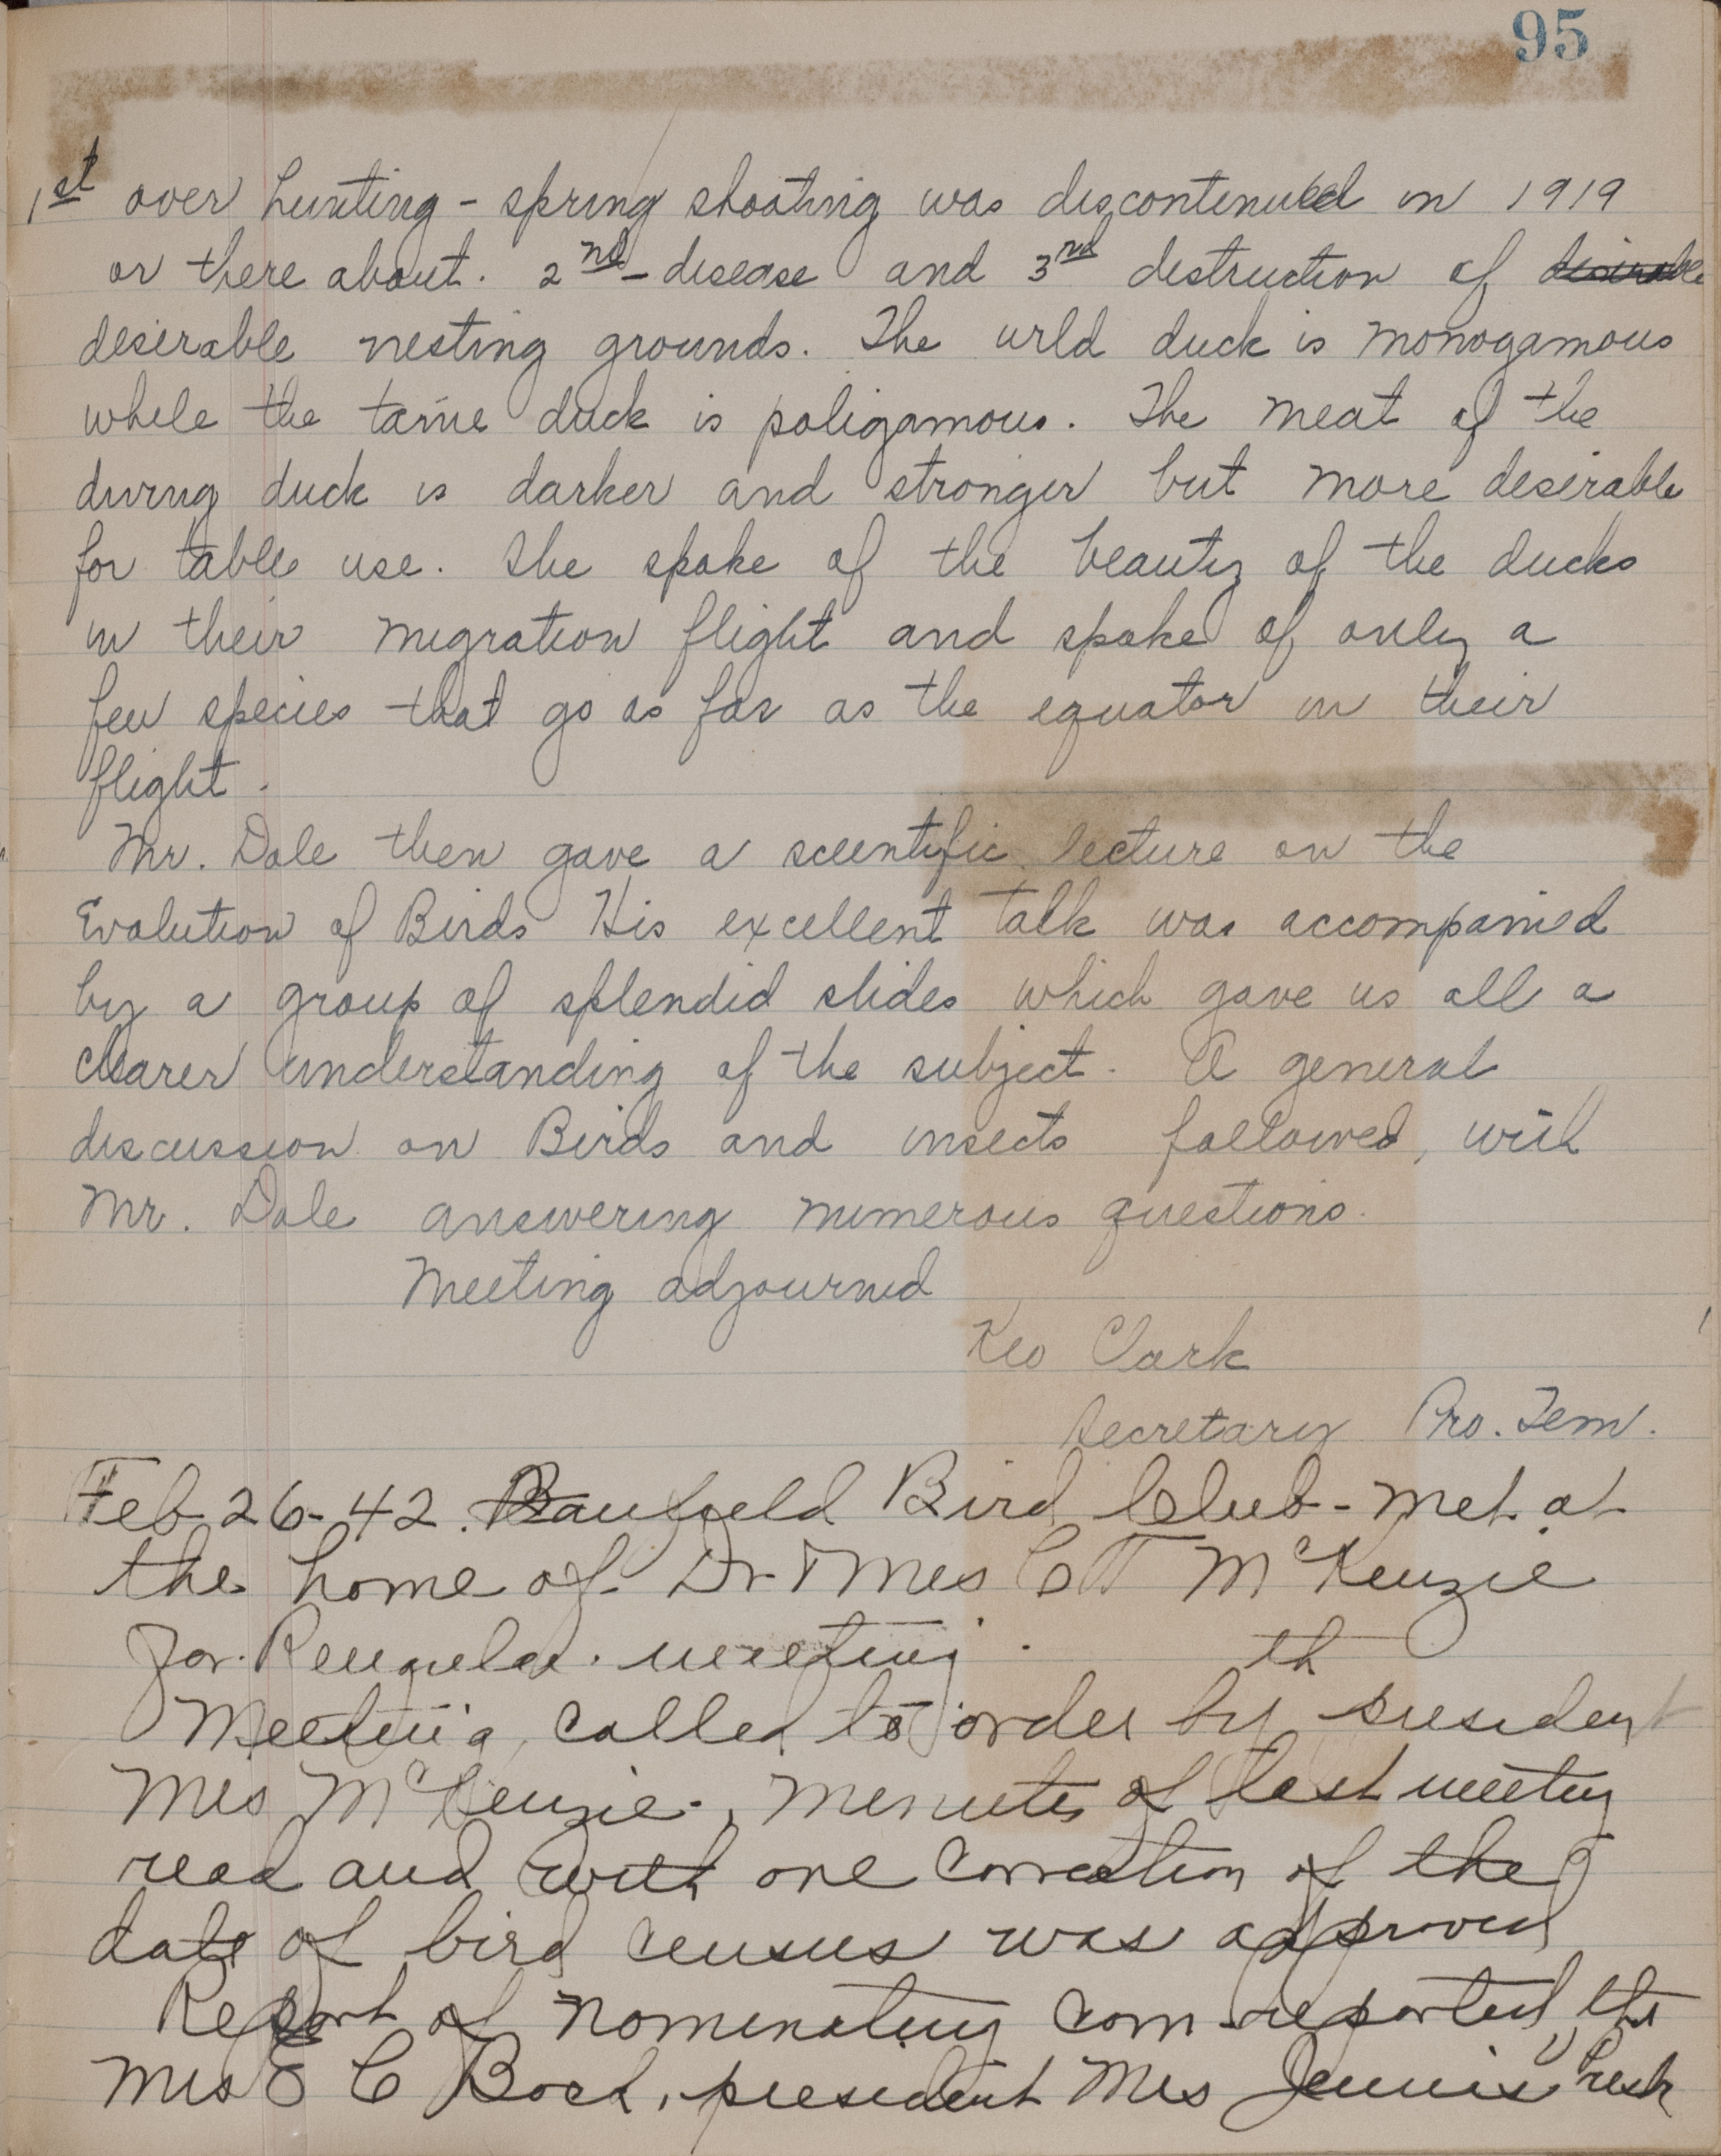 95
1st over hunting - spring shooting was discontinued in 1919
or there about. 2nd - disease and 3rd destruction of desirable
deserable nesting grounds. The wild duck is monogamous
while the tame duck is poligamous. The meat of the
diving duck is darker and stronger but more deserable
for table use. She spoke of the beauty of the ducks
in their migration flight and spoke of only a
few species that go as far as the equator in their
flight.
Mr. Dale then gave a scientific lecture on the
Evolution of Birds His excellent talk was accompanied
by a group of splendid slides which gave us all a
clearer understanding of the subject. A general
discussion on Birds and insects followed, with
Mr. Dale answering numerous questions.
Meeting adjourned
Keo Clark
Secretary Pro. Tem.
Feb-26-42. Bird Club - met at
the home of Dr & Mrs C T McKenzie
for Reugular meeting.
th
Meeting called to order by president
Mrs McKenzie. Menutes of last meeting
read and with one correction of the
date of bird census was approved
Report of nomenating com reported, the
Mrs E C Bock, president Mrs Jennie